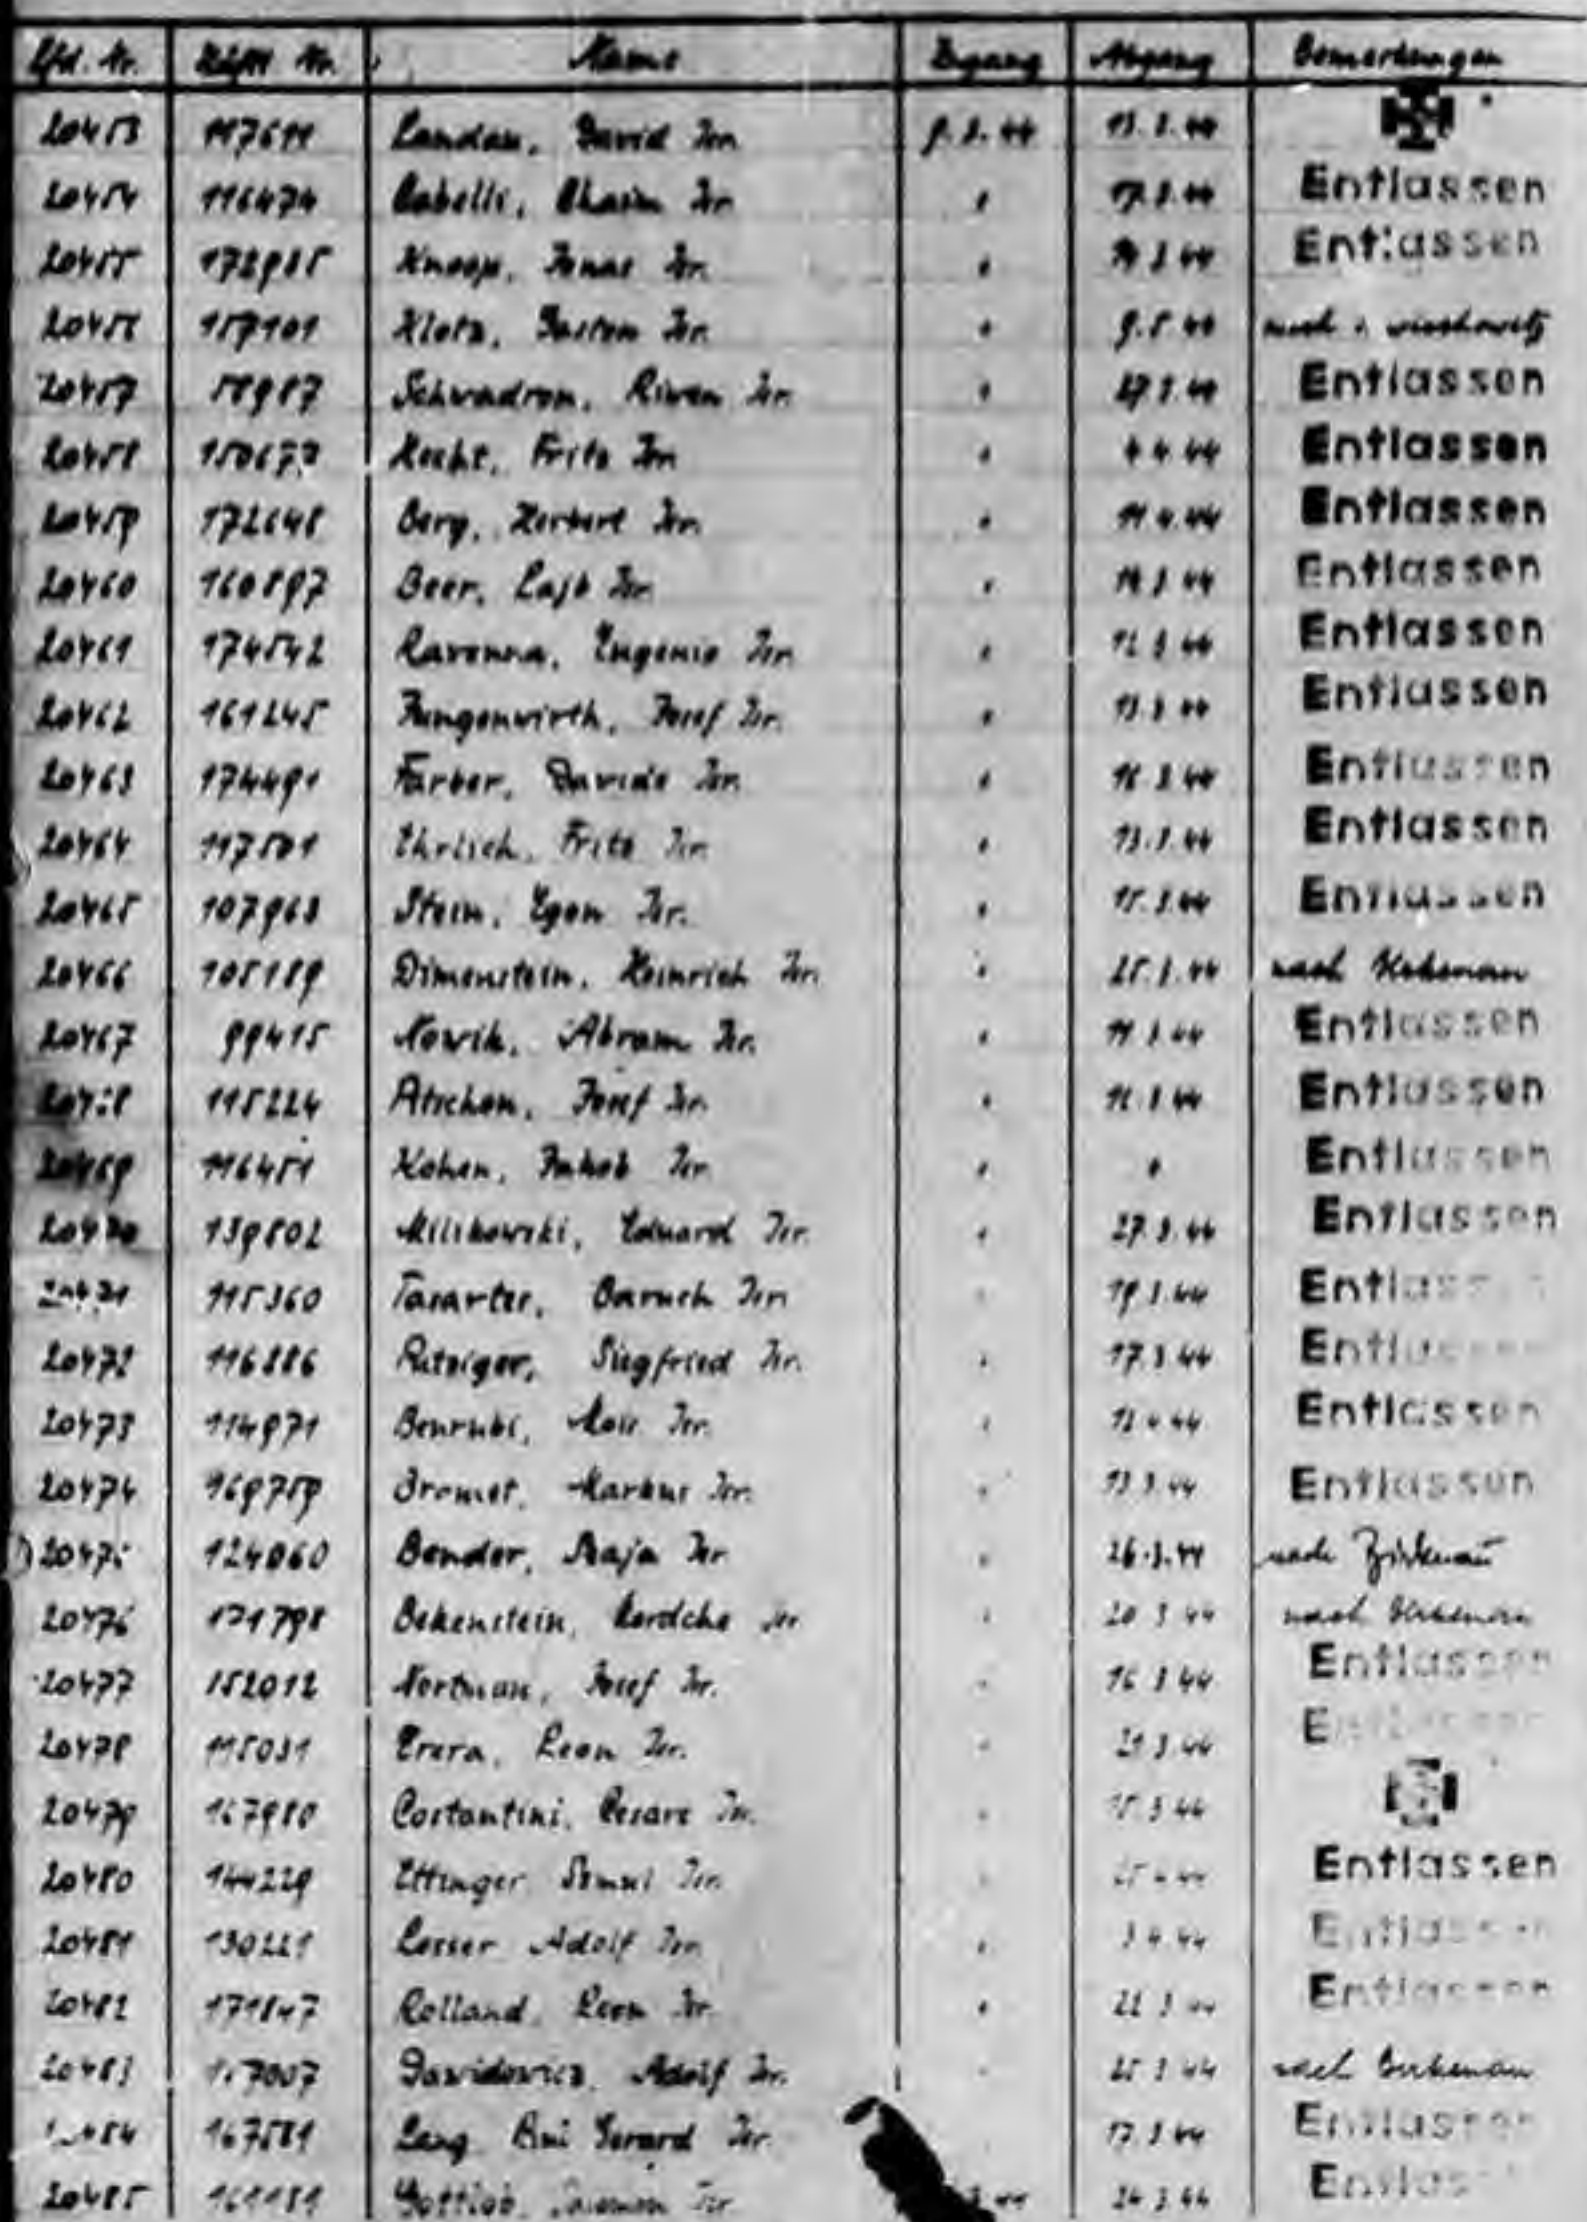 Lfd. Nr. Häftl. Nr. Name Zugang Abgang Bemerkungen
20453 117611 Landau, David Isr. 9.3.44 13.3.44
20454 116474 Cabelli, Chaim Isr. " 17.3.44 Entlassen
20455 172985 Knoop, Jonas Isr. " 14.3.44 Entlassen
20456 157101 Klotz, Gaston Isr. " 9.5.44 nach
20457 Schwadron, Riwen Isr. " 27.3.44 Entlassen
20458 Hecht, Fritz Isr. " 4.4.44 Entlassen
20459 172648 Berg, Herbert Isr. " 11.4.44 Entlassen
20460 160897 Beer, Lajb Isr. " 14.3.44 Entlassen
20461 174542 Ravenna, Eugenio Isr. " 12.3.44 Entlassen
20462 161245 Jungenwirth, Josef Isr. " 13.3.44 Entlassen
20463 174491 Farber, Davide Isr. " 16.3.44 Entlassen
20464 117501 Ehrlich, Fritz Isr. " 13.3.44 Entlassen
20465 107963 Stein, Egon Isr. " 15.3.44 Entlassen
20466 105189 Dimenstein, Heinrich Isr. " 25.3.44 nach Birkenau
20467 99415 Nowik, Abram Isr. " 11.3.44 Entlassen
115224 Josef Isr. " 16.3.44 Entlassen
20469 116451 Kohen, Jakob Isr. " " Entlassen
20470 139802 Milikowski, Eduard Isr. " 27.3.44 Entlassen
20471 115360 Baruch Isr. " 19.3.44 Entlassen
20472 116886 Siegfried Isr. " 17.3.44 Entlassen
20473 114971 Benrubi, Isr. " 12.4.44 Entlassen
20474 169759 Bromet, Markus Isr. " 13.3.44 Entlassen
20475 124060 Bender, Isr. " 26.3.44 nach Birkenau
20476 Bekenstein, Mordcha Isr. " 20.3.44 nach Birkenau
20477 152012 Nortman, Josef Isr. " 16.3.44 Entlassen
20478 115031 Errera, Leon Isr. " 21.3.44 Entlassen
20479 167980 Costantini, Cesare Isr. " 15.3.44
20480 144229 Ettinger Isr. " Entlassen
20481 130221 Lesser Adolf Isr. " 3.4.44 Entlassen
20482 171847 Rolland, Leon Isr. " 22.3.44 Entlassen
20483 Dawidowicz, Adolf Isr. " 25.3.44 nach Birkenau
167581 Gerard Isr. 17.3.44 Entlassen
20485 161181 Gottlob, Isr. 24.3.44 Entlassen